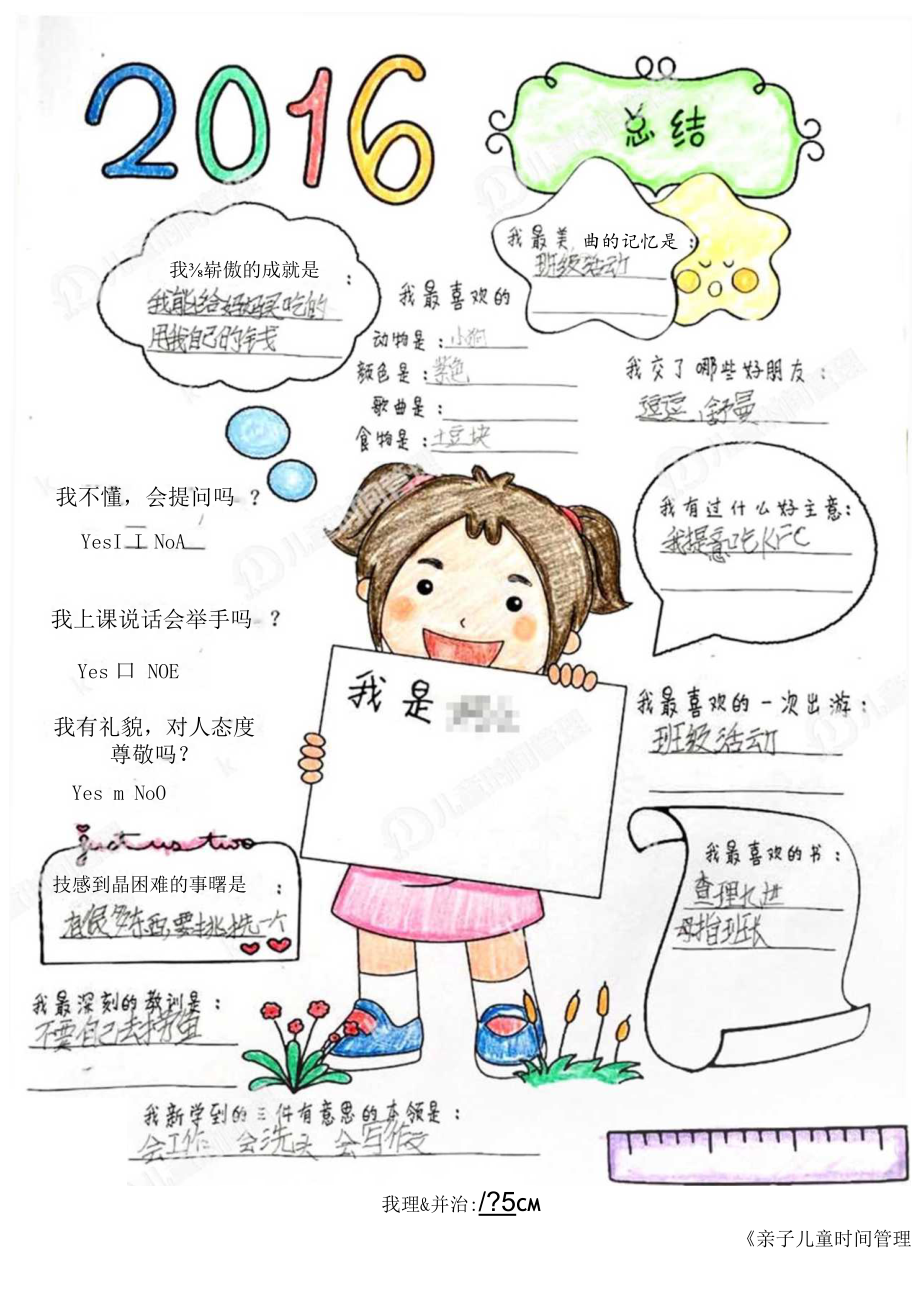 2016
总结
我最美,曲的记忆是:
班级活动
我⅜崭傲的成就是:
我能给妈妈买吃的
用我自己的钱
我最喜欢的
动物是:小狗
颜色是:紫色
歌曲是:
食物是:土豆块
我交了哪些好朋友:
逗逗、舒曼
我不懂，会提问吗 ?
YesI I NoA
我有过什么好主意:
我提意吃KFC
我上课说话会举手吗 ?
Yes 口 NOE
我有礼貌，对人态度
尊敬吗?
Yes m NoO
我是
我最喜欢的一次出游:
班级活动
just us two
技感到晶困难的事曙是:
有很多东西,要挑选一个
我最喜欢的书:
查理九进
母指班长
我最深刻的教训是:
不要自己去捞鱼
我新学到的三件有意思的本领是:
会工作 会洗头 会写作文
我理&并治:/?5CM
《亲子儿童时间管理
儿童时间管理